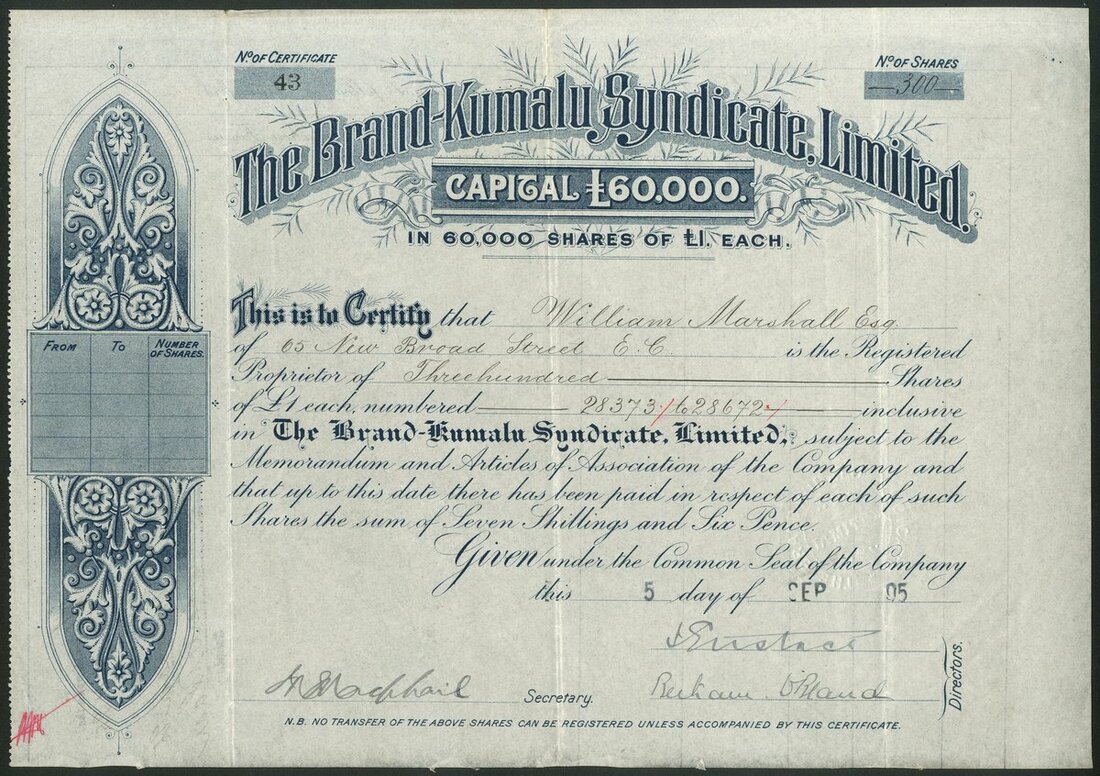 No OF CERTIFICATE
43
No OF SHARES
300
The Brand-Kumalu Syndicate, Limited.
CAPITAL £60,000.
IN 60,000 SHARES OF £1. EACH.
This is to Certify that William Marshall Esq.
of 65 New Broad Street E C is the Registered
Proprietor of Threehundred Shares
of £1 each, numbered 28373 to 28672 inclusive
in The Brand-Kumalu Syndicate, Limited, subject to the
Memorandum and Articles of Association of the Company and
that up to this date there has been paid in respect of each of such
Shares the sum of Seven Shillings and Six Pence.
Given under the Common Seal of the Company
this 5 day of SEP 05
FROM TO NUMBER OF SHARES.
Eustace
Secretary.
Directors.
N.B. NO TRANSFER OF THE ABOVE SHARES CAN BE REGISTERED UNLESS ACCOMPANIED BY THIS CERTIFICATE.